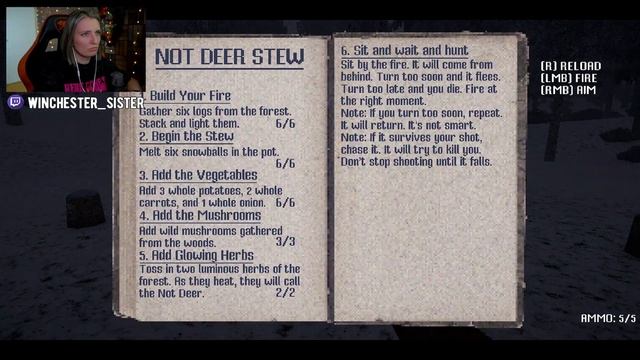 NOT DEER STEW
1. Build Your Fire
Gather six logs from the forest.
Stack and light them. 6/6
2. Begin the Stew
Melt six snowballs in the pot.
6/6
3. Add the Vegetables
Add 3 whole potatoes, 2 whole
carrots, and 1 whole onion. 6/6
4. Add the Mushrooms
Add wild mushrooms gathered
from the woods. 3/3
5. Add Glowing Herbs
Toss in two luminous herbs of the
forest. As they heat, they will call
the Not Deer. 2/2
6. Sit and wait and hunt
Sit by the fire. It will come from
behind. Turn too soon and it flees.
Turn too late and you die. Fire at
the right moment.
Note: If you turn too soon, repeat.
It will return. It's not smart.
Note: If it survives your shot,
chase it. It will try to kill you.
Don't stop shooting until it falls.
[R] RELOAD
[LMB] FIRE
[RMB] AIM
WINCHESTER_SISTER
AMMO: 5/5